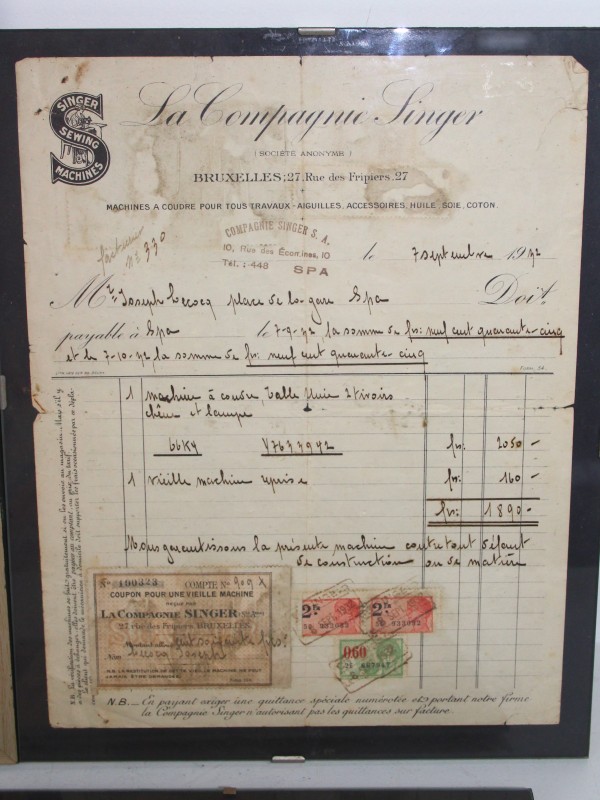 SINGER
SEWING
MACHINES
La Compagnie Singer
(SOCIÉTÉ ANONYME)
BRUXELLES; 27, Rue des Fripiers. 27
MACHINES A COUDRE POUR TOUS TRAVAUX - AIGUILLES, ACCESSOIRES, HUILE, SOIE, COTON.
facture
No 330
COMPAGNIE SINGER S. A.
10, Rue des Écomines, 10
Tél.: 448 SPA
le 7 septembre 1942
Mr Joseph Lecocq place de la gare Spa Doit
payable à Spa le 7-9-42 la somme de frs: neuf cent quarante-cinq
et le 7-10-42 la somme de frs: neuf cent quarante-cinq
1 machine à coudre, table 2 tiroirs
chêne et lampe
66K4 Y7637942 frs: 2050 -
1 vieille machine reprise frs: 160 -
frs: 1890 -
Nous garantissons la présente machine contre tout défaut
de construction ou de matière
No 100323 COMPTE No 909
COUPON POUR UNE VIEILLE MACHINE
REÇUE PAR
LA COMPAGNIE SINGER
27 rue des Fripiers BRUXELLES.
cent soixante frs.
Nom Lecocq Joseph
2 Fr 2 Fr
0,60
N.B. _ En payant exiger une quittance spéciale numérotée et portant notre firme
la Compagnie Singer n'autorisant pas les quittances sur facture.